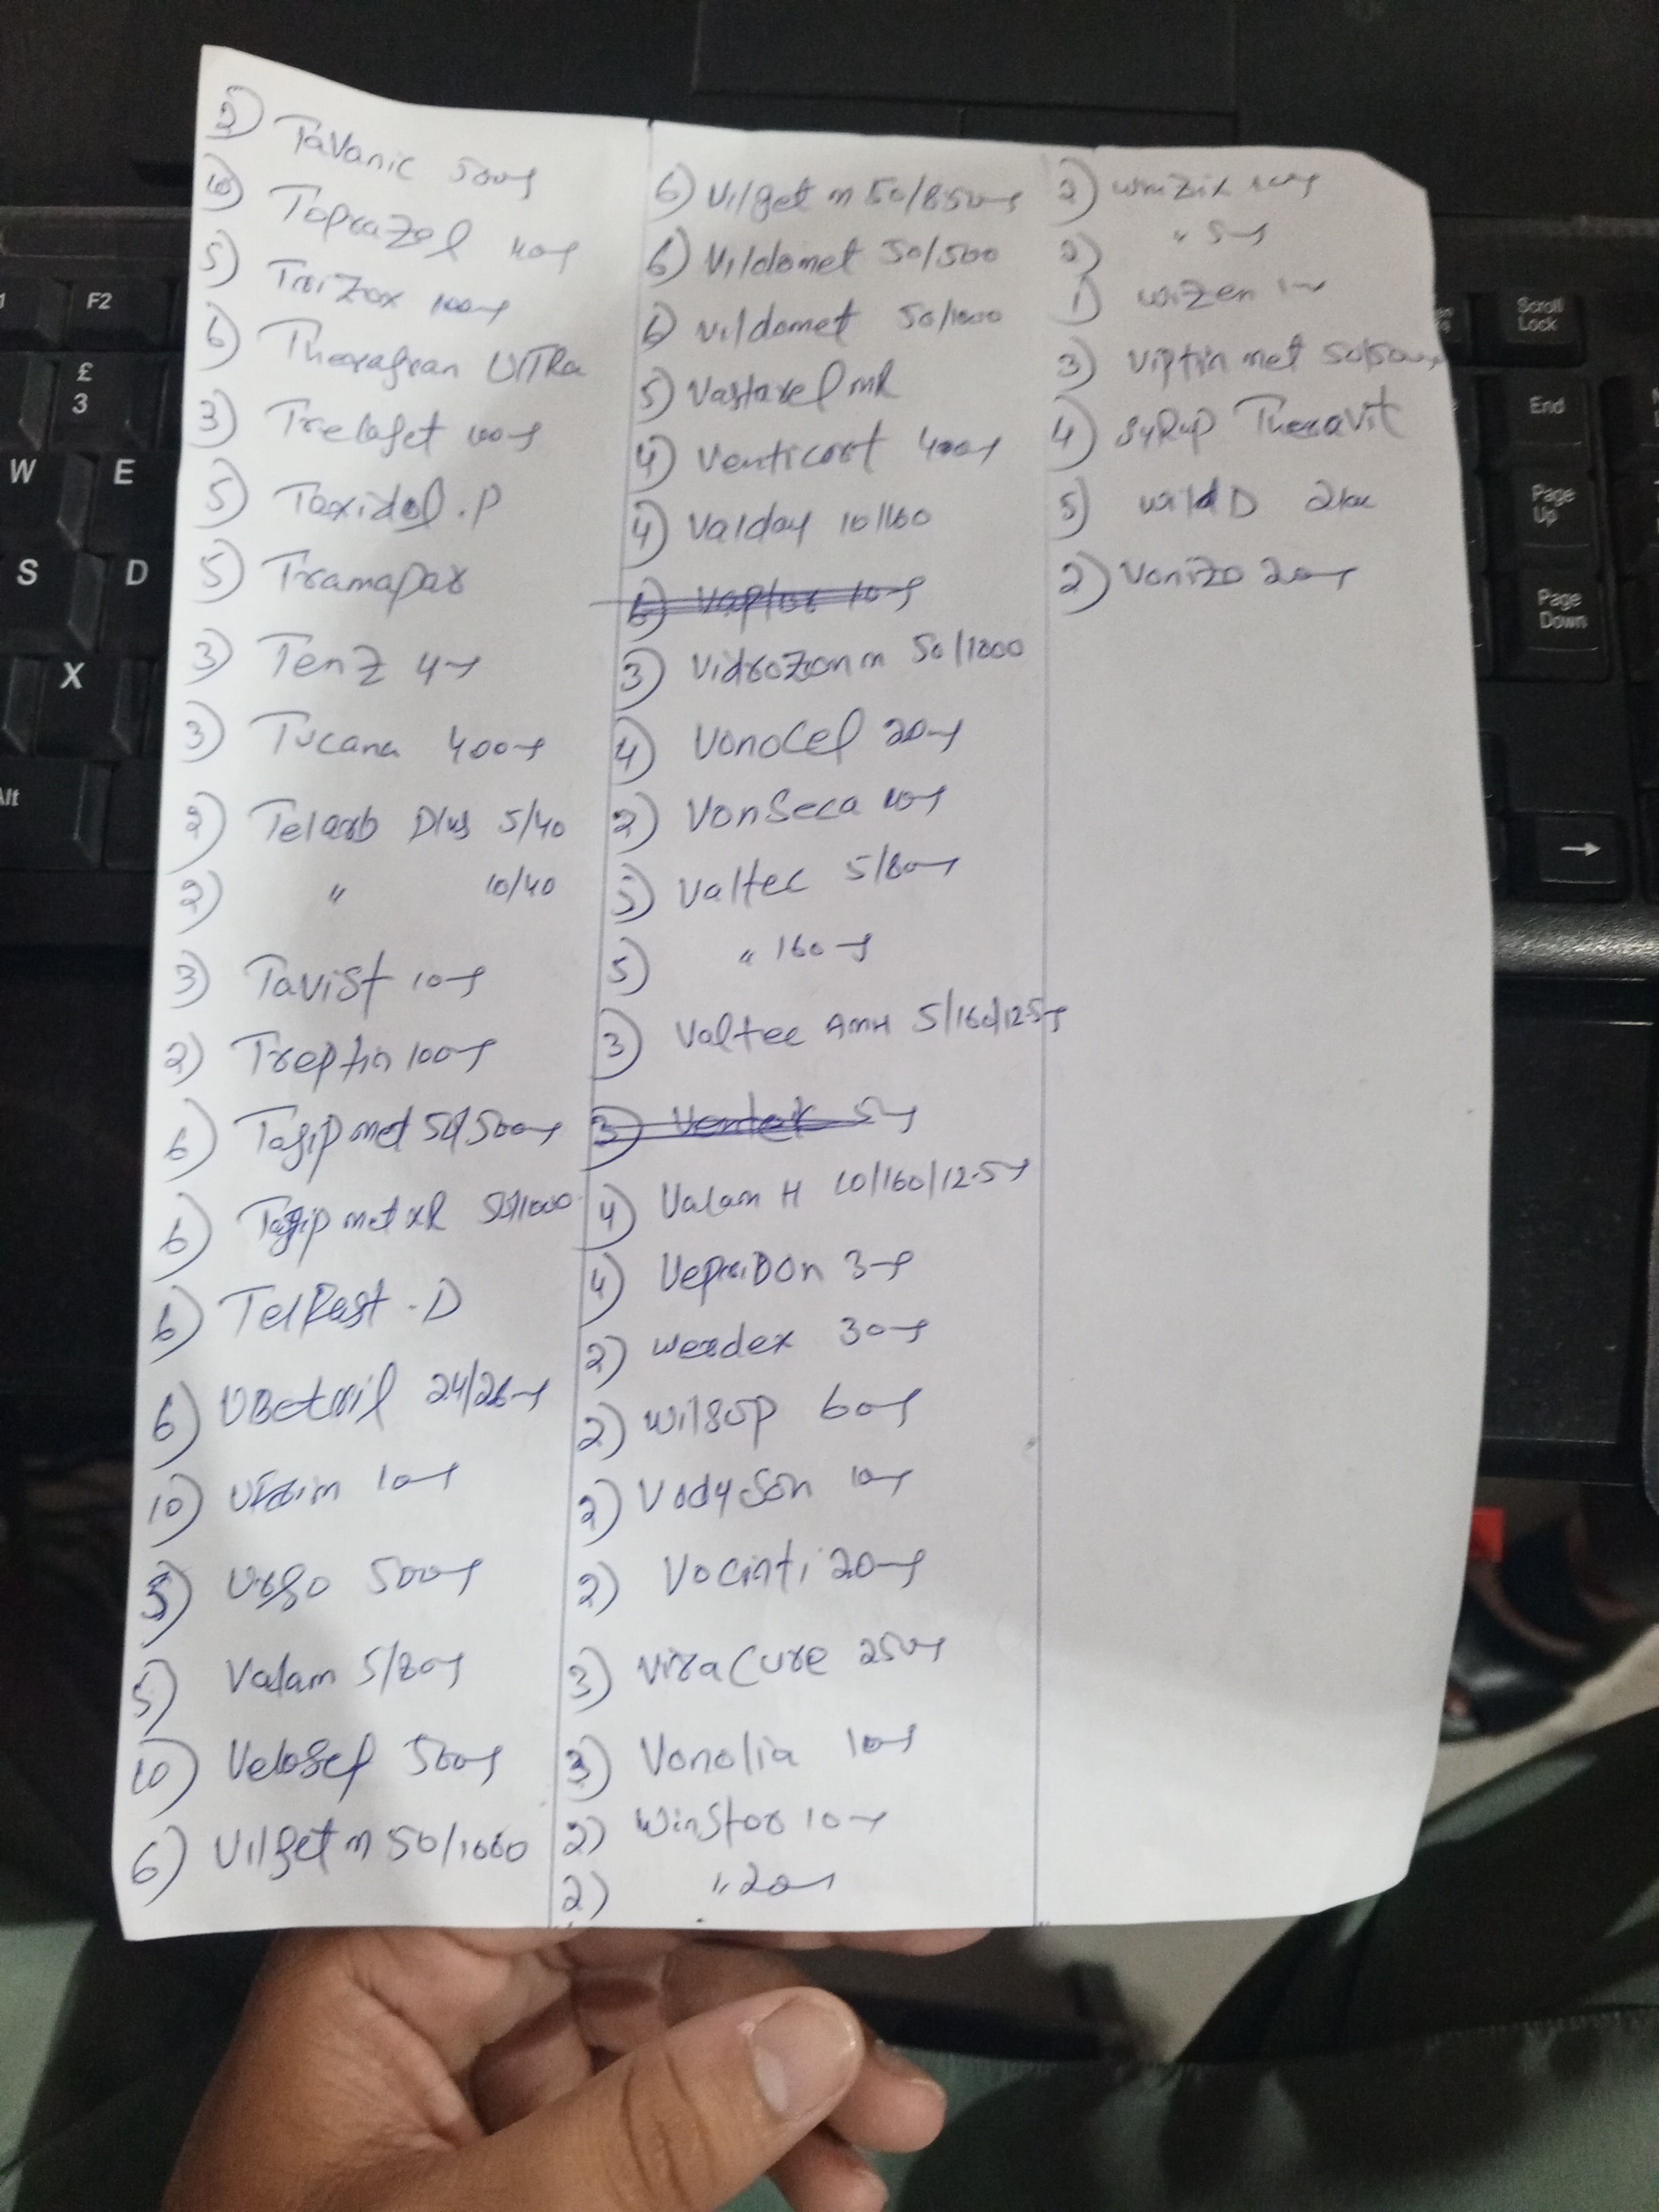 2) Tavanic 500mg
10) Toprazol 40mg
5) Trizox 100mg
6) Theragran Ultra
3) Trelaget 100mg
5) Toxidol.P
5) Tramapar
3) Tenz 4mg
3) Tucana 400mg
2) Telarb Plus 5/40
2) " 10/40
3) Tavist 10mg
2) Treptin 100mg
6) Tagip met 50/500mg
6) Tagip met XR 50/1000
6) TelRast.D
6) UBetril 24/26mg
10) 10mg
5) 500mg
5) Valam 5/80mg
10) Velosef 500mg
6) Vilget m 50/1000
6) Vilget m 50/850mg
6) Vildomet 50/500
6) Vildomet 50/1000
5) Vastarel MR
4) Venticort 400mg
4) Valday 10/160
6) Vaptor 10mg
3) Vidrozon m 50/1000
4) Vonocel 20mg
2) Vonseca 10mg
5) Valtec 5/80mg
5) " 160mg
3) Valtec AMH 5/160/12.5mg
3) 5mg
4) Valam H 10/160/12.5mg
4) VepriDon 3mg
2) Werdex 30mg
2) Wilgop 60mg
2) Vodyson 10mg
2) Vocinti 20mg
3) ViraCure 250mg
3) Vonolia 10mg
2) Winstor 10mg
2) " 20mg
2) Winzix
2) " 5mg
1) Wizen
3) Viptin met 50/500mg
4) Syrup Theravit
5) Wild D
2) Vonizo 20mg
F2
£
3
W
E
S
D
X
Alt
Scroll
Lock
End
Page
Up
Page
Down